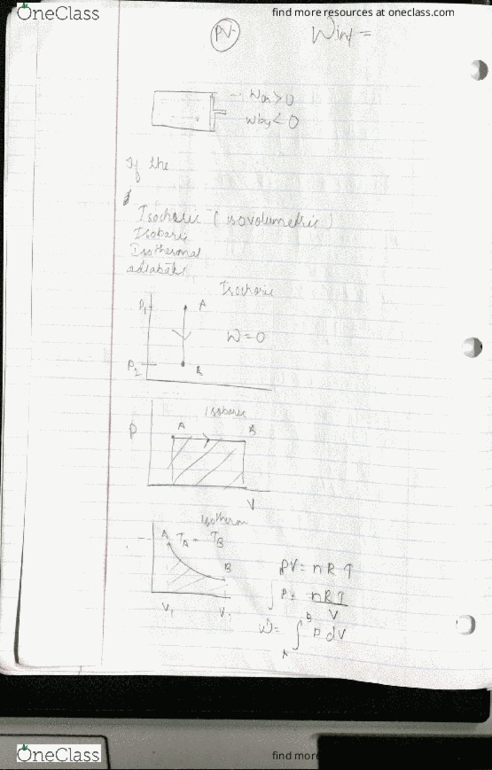 OneClass
find more resources at oneclass.com
PV
W
Won > 0
Wby < 0
If the
Isochoric (isovolumetric)
Isobaric
Isothermal
adiabatic
Isochoric
P1
A
W = 0
P2
B
Isobaric
P
A
B
V
Isotherm
A
TA = TB
B
V1
PV = nRT
∫ P = nRT/V
W = ∫ P dV
A
B
OneClass
find more